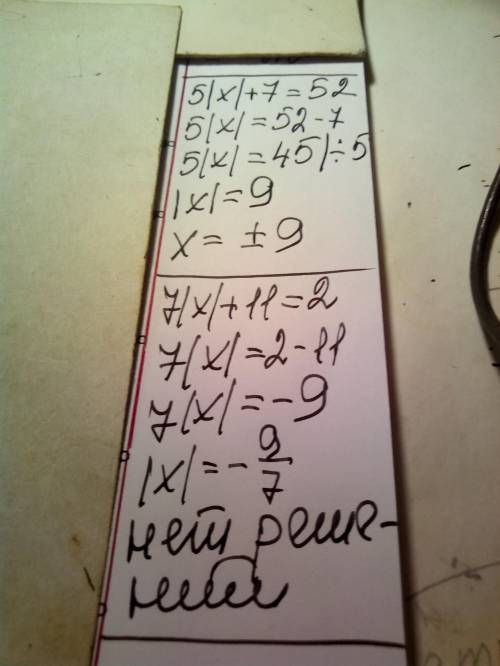 5|x|+7=52
5|x|=52-7
5|x|=45|÷5
|x|=9
x=±9
7|x|+11=2
7|x|=2-11
7|x|=-9
|x|=-9/7
нет реше-
ний